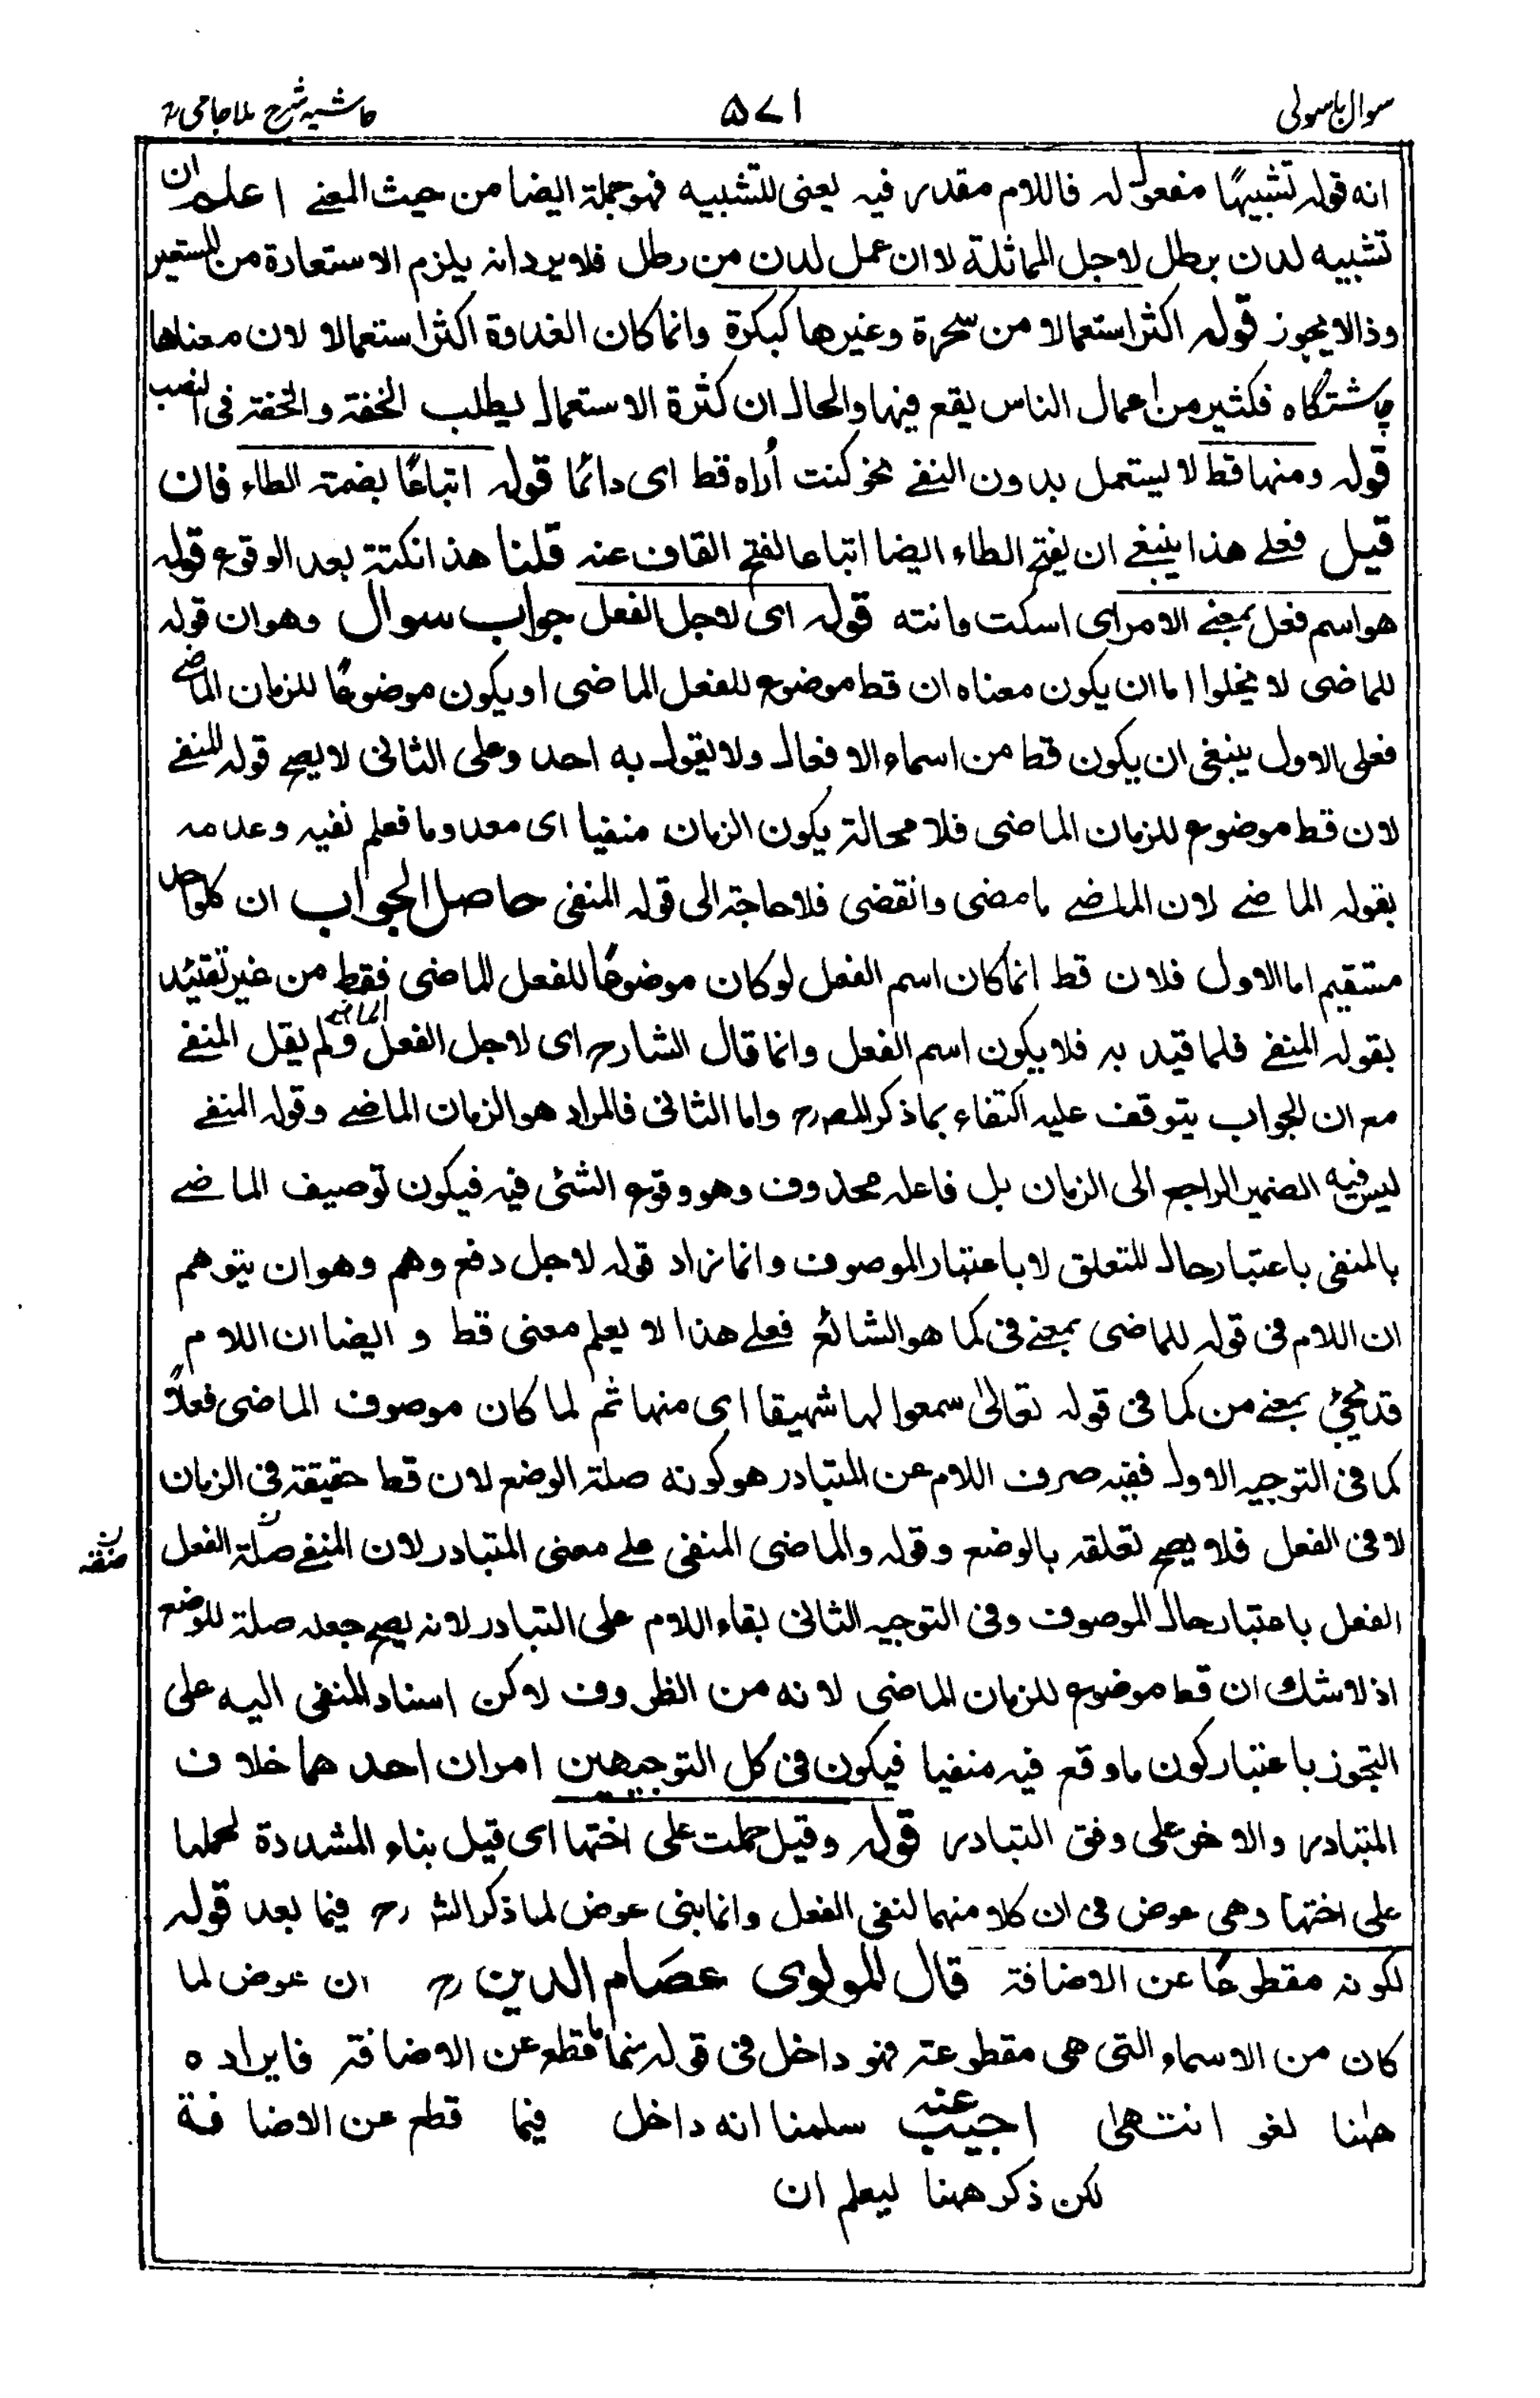 سوال باسولی ۵۷۱ حاشیہ شرح ملا جامی رح
انه قوله تشبيهًا مفعول له فاللام مقدر فيه يعنى للتشبيه فهو جملة ايضا من حيث المعنے اعلم ان
تشبيه لدن برطل لاجل المماثلة لا ان عمل لدن من رطل فلا يرد انه يلزم الاستعارة من المستعير
وذا لا يجوز قوله اكثر استعمالا من سحرة وغيرها كبكرة وانما كان الغدوة اكثر استعمالا لان معناها
چاشتگاه فكثير من اعمال الناس يقع فيها والحال ان كثرة الاستعمال يطلب الخفة والخفة فى النصب
قوله ومنها قط لا يستعمل بدون النفے نحو كنت أراه قط اى دائمًا قوله اتباعًا بضمة الطاء فان
قيل فعلے هذا ينبغے ان يفتح الطاء ايضا اتباعا لفتح القاف عنه قلنا هذا نكتة بعد الوقوع قوله
هو اسم فعل بمعنے الامر اى اسكت وانته قوله اى لاجل الفعل جواب سوال وهو ان قوله
للماضى لا يخلوا اما ان يكون معناه ان قط موضوع للفعل الماضى او يكون موضوعًا للزمان الماضے
فعلى الاول ينبغى ان يكون قط من اسماء الافعال ولا يقول به احد وعلى الثانى لا يصح قوله المنفے
لان قط موضوع للزمان الماضى فلا محالة يكون الزمان منفيا اى معدوما فعلم نفيه وعدمه
بقوله الماضے لان الماضے ما مضى وانقضى فلا حاجة الى قوله المنفى حاصل الجواب ان كلا واحد
مستقيم اما الاول فلان قط انما كان اسم الفعل لو كان موضوعًا للفعل الماضى فقط من غير تقييد
بقوله المنفے فلما قيد به فلا يكون اسم الفعل وانما قال الشارح اى لاجل الفعل الماضے ولم يقل المنفے
مع ان الجواب يتوقف عليه اكتفاء بما ذكر المصرح واما الثانى فالمراد هو الزمان الماضے وقوله المنفے
ليس فيه الضمير الراجع الى الزمان بل فاعله محذوف وهو وقوع الشئى فيه فيكون توصيف الماضے
بالمنفى باعتبار حال المتعلق لا باعتبار الموصوف وانما زاد قوله لاجل دفع وهم وهو ان يتوهم
ان اللام فى قوله للماضى بمعنے فى كما هو الشائع فعلے هذا لا يعلم معنى قط و ايضا ان اللام
قد يجئ بمعنے من كما فى قوله تعالىٰ سمعوا لها شهيقا اى منها ثم لما كان موصوف الماضى فعلاً
كما فى التوجيه الاول ففيه صرف اللام عن المتبادر هو كونه صلة الوضع لان قط حقيقة فى الزمان
لا فى الفعل فلا يصح تعلقه بالوضع وقوله والماضى المنفى علے معنى المتبادر لان المنفے صلة الفعل
صفة
الفعل باعتبار حال الموصوف وفى التوجيه الثانى بقاء اللام على التبادر لانه يصح جعله صلة للوضع
اذ لا شك ان قط موضوع للزمان الماضى لانه من الظروف لاكن اسناد المنفى اليه على
التجوز باعتبار كون ما وقع فيه منفيا فيكون فى كل التوجيهين امران احدهما خلاف
المتبادر والاخر على وفق التبادر قوله وقيل حملت على اختها اى قيل بناء المشددة لحملها
على اختها وهى عوض فى ان كلا منهما لنفى الفعل وانما بنى عوض لما ذكر الشرح فيما بعد قوله
لكونه مقطوعًا عن الاضافة قال المولوى عصام الدين رح ان عوض لما
كان من الاسماء التى هى مقطوعة فهو داخل فى قوله فيما قطع عن الاضافة فايراده
ههنا لغو انتهىٰ اجيب عنه سلمنا انه داخل فيما قطع عن الاضافة
لكن ذكر ههنا ليعلم ان